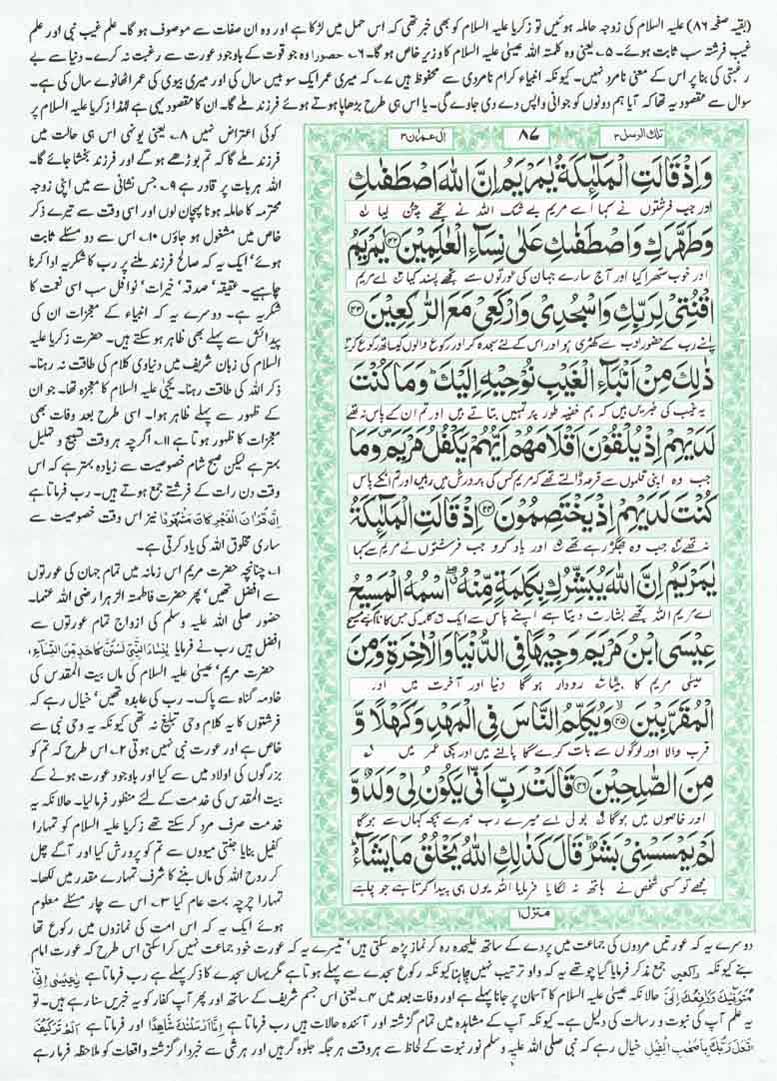 (بقیہ صفحہ ۸۶) علیہ السلام کی زوجہ حاملہ ہوئیں تو زکریا علیہ السلام کو بھی خبر تھی کہ اس حمل میں لڑکا ہے اور وہ ان صفات سے موصوف ہو گا۔ علم غیب نبی اور علم
غیب فرشتہ سب ثابت ہوئے۔ ۵۔ یعنی وہ کلمتہ اللہ عیسیٰ علیہ السلام کا وزیر خاص ہو گا۔ ۶۔ حصورا وہ جو قوت کے باوجود عورت سے رغبت نہ کرے۔ دنیا سے بے
رغبتی کی بنا پر اس کے معنی نامرد نہیں۔ کیونکہ انبیاء کرام نامردی سے محفوظ ہیں ۷۔ کہ میری عمر ایک سو بیس سال کی اور میری بیوی کی عمر اٹھانوے سال کی ہے۔
سوال سے مقصود یہ تھا کہ آیا ہم دونوں کو جوانی واپس دے دی جاوے گی۔ یا اس ہی طرح بڑھاپا ہوتے ہوئے فرزند ملے گا۔ ان کا مقصود یہی ہے لہٰذا زکریا علیہ السلام پر
کوئی اعتراض نہیں ۸۔ یعنی یونہی اس ہی حالت میں
فرزند ملے گا کہ تم بوڑھے ہو گے اور فرزند بخشا جائے گا۔
اللہ ہر بات پر قادر ہے ۹۔ جس نشانی سے میں اپنی زوجہ
محترمہ کا حاملہ ہونا پہچان لوں اور اسی وقت سے تیرے ذکر
خاص میں مشغول ہو جاؤں ۱۰۔ اس سے دو مسئلے ثابت
ہوئے' ایک یہ کہ صالح فرزند ملنے پر رب کا شکریہ ادا کرنا
چاہیے۔ عقیقہ' صدقہ' خیرات' نوافل سب اسی نعمت کا
شکریہ ہے۔ دوسرے یہ کہ انبیاء کے معجزات ان کی
پیدائش سے پہلے بھی ظاہر ہو سکتے ہیں۔ حضرت زکریا علیہ
السلام کی زبان شریف میں دنیاوی کلام کی طاقت نہ رہنا۔
ذکر اللہ کی طاقت رہنا۔ یحییٰ علیہ السلام کا معجزہ تھا۔ جو ان
کے ظہور سے پہلے ظاہر ہوا۔ اسی طرح بعد وفات بھی
معجزات کا ظہور ہوتا ہے ۱۱۔ اگرچہ ہر وقت تسبیح و تہلیل
بہتر ہے لیکن صبح شام خصوصیت سے زیادہ بہتر ہے کہ اس
وقت دن رات کے فرشتے جمع ہوتے ہیں۔ رب فرماتا ہے
اِنَّ قُرْاٰنَ الْفَجْرِ كَانَ مَشْهُوْدًا نیز اس وقت خصوصیت سے
ساری مخلوق اللہ کی یاد کرتی ہے۔
۱۔ چنانچہ حضرت مریم اس زمانہ میں تمام جہان کی عورتوں
سے افضل تھیں' پھر حضرت فاطمتہ الزہرا رضی اللہ عنہا۔
حضور صلی اللہ علیہ وسلم کی ازواج تمام عورتوں سے
افضل ہیں رب نے فرمایا يٰنِسَآءَ النَّبِيِّ لَسْتُنَّ كَاَحَدٍ مِّنَ النِّسَآءِ،
حضرت مریم' عیسیٰ علیہ السلام کی ماں بیت المقدس کی
خادمہ گناہ سے پاک۔ رب کی عابدہ تھیں' خیال رہے کہ
فرشتوں کا یہ کلام وحی تبلیغ نہ تھی کیونکہ یہ وحی نبی سے
خاص ہے اور عورت نبی نہیں ہوتی ۲۔ اس طرح کہ تم کو
بزرگوں کی اولاد میں سے کیا اور باوجود عورت ہونے کے
بیت المقدس کی خدمت کے لئے منظور فرما لیا۔ حالانکہ یہ
خدمت صرف مرد کر سکتے تھے زکریا علیہ السلام کو تمہارا
کفیل بنایا جنتی میووں سے تم کو پرورش کیا اور آگے چل
کر روح اللہ کی ماں بننے کا شرف تمہارے مقدر میں لکھا۔
تمہارا چرچہ بہت عام کیا ۳۔ اس سے چار مسئلے معلوم
ہوئے ایک یہ کہ اس امت کی نمازوں میں رکوع تھا
تلك الرسل ۳
۸۷
اٰل عمرٰن ۳
وَاِذْ قَالَتِ الْمَلٰٓئِكَةُ يٰمَرْيَمُ اِنَّ اللّٰهَ اصْطَفٰىكِ
اور جب فرشتوں نے کہا اے مریم بے شک اللہ نے تجھے چن لیا
وَطَهَّرَكِ وَاصْطَفٰىكِ عَلٰى نِسَآءِ الْعٰلَمِيْنَ ۴۲ يٰمَرْيَمُ
اور خوب ستھرا کیا اور آج سارے جہان کی عورتوں سے تجھے پسند کیا اے مریم
اقْنُتِيْ لِرَبِّكِ وَاسْجُدِيْ وَارْكَعِيْ مَعَ الرّٰكِعِيْنَ ۴۳
اپنے رب کے حضور ادب سے کھڑی ہو اور اس کے لئے سجدہ کر اور رکوع والوں کیساتھ رکوع کر
ذٰلِكَ مِنْ اَنْۢبَآءِ الْغَيْبِ نُوْحِيْهِ اِلَيْكَ ؕ وَمَا كُنْتَ
یہ غیب کی خبریں ہیں کہ ہم خفیہ طور پر تمہیں بتاتے ہیں اور تم ان کے پاس نہ تھے
لَدَيْهِمْ اِذْ يُلْقُوْنَ اَقْلَامَهُمْ اَيُّهُمْ يَكْفُلُ مَرْيَمَ ۪ وَمَا
جب وہ اپنی قلموں سے قرعہ ڈالتے تھے کہ مریم کس کی پرورش میں رہیں اور تم انکے پاس
كُنْتَ لَدَيْهِمْ اِذْ يَخْتَصِمُوْنَ ۴۴ اِذْ قَالَتِ الْمَلٰٓئِكَةُ
نہ تھے جب وہ جھگڑ رہے تھے اور یاد کرو جب فرشتوں نے مریم سے کہا
يٰمَرْيَمُ اِنَّ اللّٰهَ يُبَشِّرُكِ بِكَلِمَةٍ مِّنْهُ ۖ اسْمُهُ الْمَسِيْحُ
اے مریم اللہ تجھے بشارت دیتا ہے اپنے پاس سے ایک کلمہ کی جس کا نام ہے مسیح
عِيْسَى ابْنُ مَرْيَمَ وَجِيْهًا فِي الدُّنْيَا وَالْاٰخِرَةِ وَمِنَ
عیسیٰ مریم کا بیٹا رودار ہوگا دنیا اور آخرت میں اور
الْمُقَرَّبِيْنَ ۴۵ وَيُكَلِّمُ النَّاسَ فِي الْمَهْدِ وَكَهْلًا وَّ
قرب والا اور لوگوں سے بات کرے گا پالنے میں اور پکی عمر میں
مِنَ الصّٰلِحِيْنَ ۴۶ قَالَتْ رَبِّ اَنّٰى يَكُوْنُ لِيْ وَلَدٌ وَّ
اور خاصوں میں ہوگا بولی اے میرے رب میرے بچہ کہاں سے ہوگا
لَمْ يَمْسَسْنِيْ بَشَرٌ ؕ قَالَ كَذٰلِكِ اللّٰهُ يَخْلُقُ مَا يَشَآءُ ؕ
مجھے تو کسی شخص نے ہاتھ نہ لگایا فرمایا اللہ یوں ہی پیدا کرتا ہے جو چاہے
منزل ۱
دوسرے یہ کہ عورتیں مردوں کی جماعت میں پردے کے ساتھ علیحدہ رہ کر نماز پڑھ سکتی ہیں' تیسرے یہ کہ عورت خود جماعت نہیں کرا سکتی اس طرح کہ عورت امام
بنے کیونکہ راکعین جمع مذکر فرمایا گیا چوتھے یہ کہ واو ترتیب نہیں چاہتا کیونکہ رکوع سجدے سے پہلے ہوتا ہے مگر یہاں سجدے کا ذکر پہلے ہے رب فرماتا ہے يٰعِيْسٰى اِنِّيْ
مُتَوَفِّيْكَ وَرَافِعُكَ اِلَيَّ حالانکہ عیسیٰ علیہ السلام کا آسمان پر جانا پہلے ہے اور وفات بعد میں ۴۔ یعنی اس جسم شریف کے ساتھ اور پھر آپ کفار کو یہ خبریں سنا رہے ہیں۔ تو
یہ علم آپ کی نبوت و رسالت کی دلیل ہے۔ کیونکہ آپ کے مشاہدہ میں تمام گزشتہ اور آئندہ حالات ہیں رب فرماتا ہے اِنَّآ اَرْسَلْنٰكَ شَاهِدًا اور فرماتا ہے اَلَمْ تَرَ كَيْفَ
فَعَلَ رَبُّكَ بِاَصْحٰبِ الْفِيْلِ خیال رہے کہ نبی صلی اللہ علیہ وسلم نور نبوت کے لحاظ سے ہر وقت ہر جگہ جلوہ گر ہیں اور ہر شی سے خبردار گزشتہ واقعات کو ملاحظہ فرما رہے